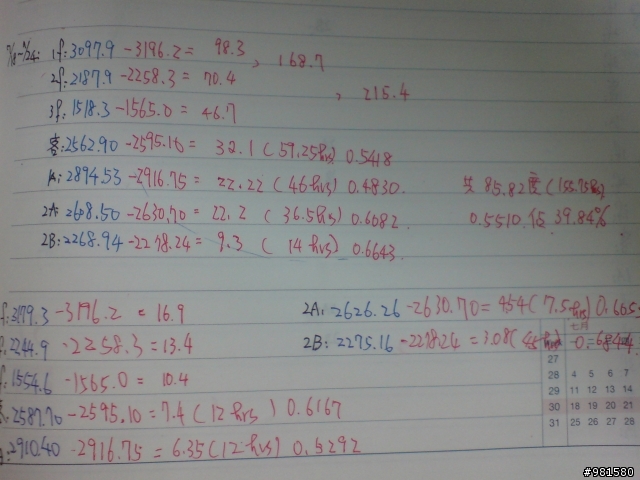 1f: 3097.9 -3196.2 = 98.3 , 168.7
2f: 2187.9 -2258.3 = 70.4 , 215.4
3f: 1518.3 -1565.0 = 46.7
客: 2562.90 -2595.10 = 32.1 (59.25hrs) 0.5418
2894.53 -2916.75 = 22.22 (46hrs) 0.4830
共 85.82度 (155.75hrs)
2A: 2608.50 -2630.70 = 22.2 (36.5hrs) 0.6082
0.5510.佔 39.84%
2B: 2268.94 -2278.24 = 9.3 (14 hrs) 0.6643
f: 3179.3 -3196.2 = 16.9
2A: 2626.26 -2630.70 = 4.54 (7.5hrs) 0.605
f: 2244.9 -2258.3 = 13.4
2B: 2275.16 -2278.24 = 3.08 (4.5hrs) 0.6844
f: 1554.6 -1565.0 = 10.4
2587.70 -2595.10 = 7.4 (12 hrs) 0.6167
2910.40 -2916.75 = 6.35 (12 hrs) 0.5292
七月
27
28 4 5 6 7
29 11 12 13 14
30 18 19 20 21
31 25 26 27 28
#981580